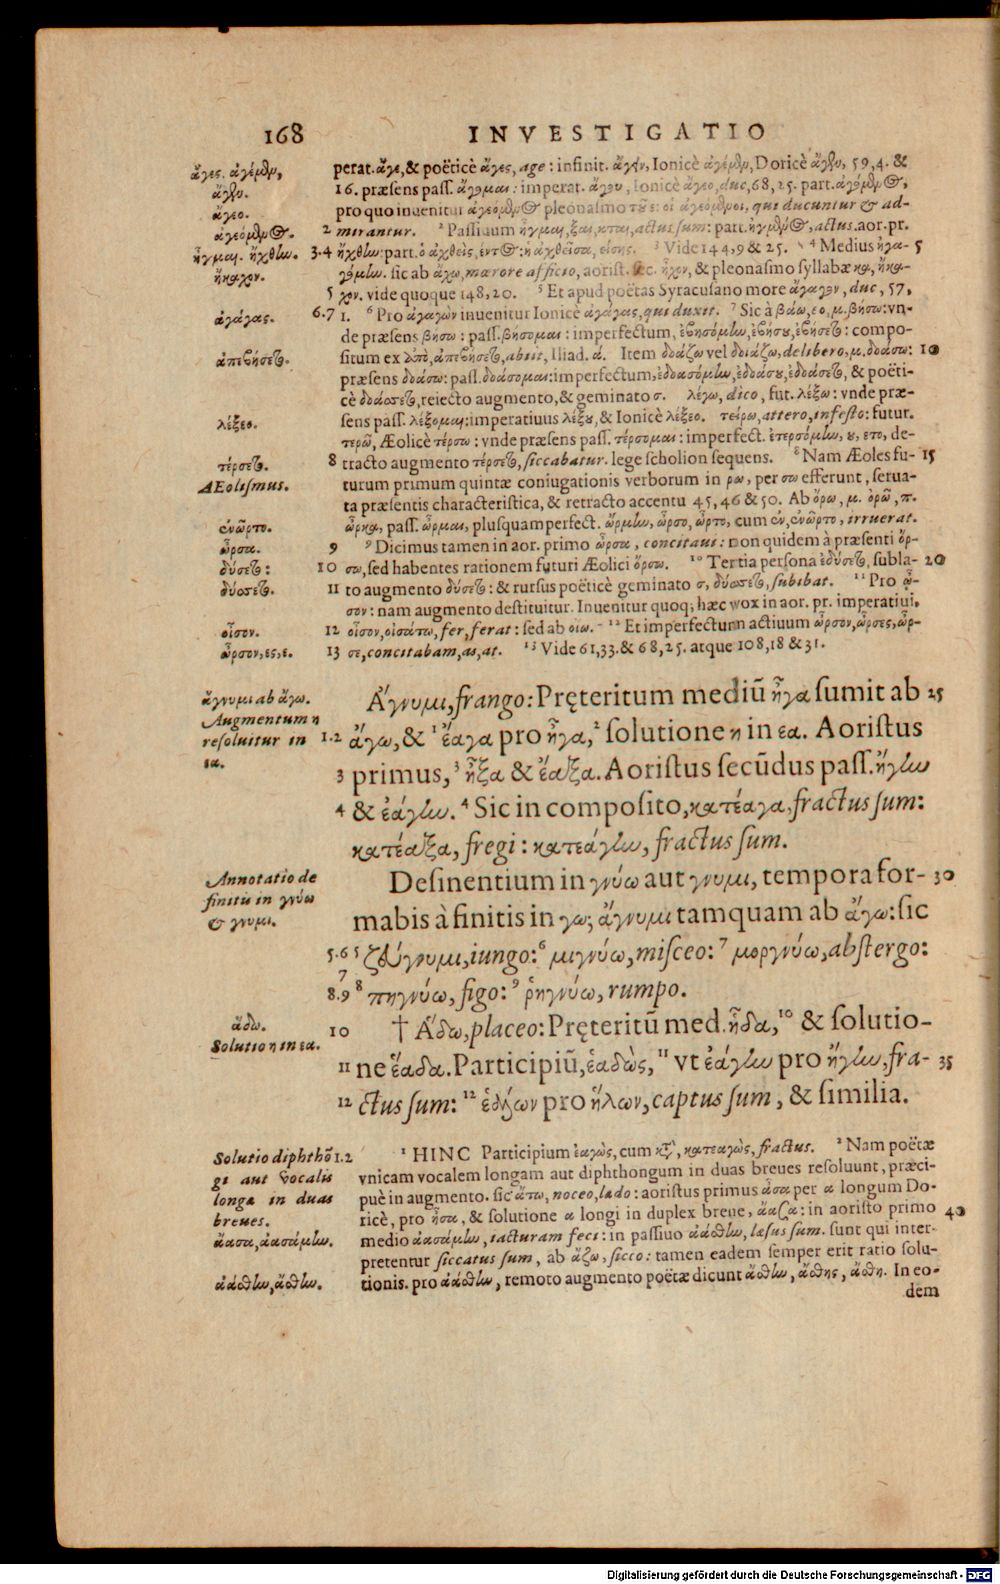 168 INVESTIGATIO
ἄγες. ἀγέμεν,
ἄγεν.
ἄγεο.
ἀγεόμενος.
ἦγμαι. ἤχθην.
ἤκαχον.
ἀγάγας.
ἀπεβήσετο.
λέξεο.
τέρσετο.
AEolismus.
ἐνῶρτο.
ὦρσα.
δύσετο:
δύσσετο.
οἶσον.
ὦρσον, ες, ε.
perat. ἄγε, & poëticè ἄγες, age: infinit. ἄγειν, Ionicè ἀγέμεν, Doricè ἄγεν, 59, 4. &
16. præsens pass. ἄγομαι: imperat. ἄγου, Ionicè ἄγεο, duc, 68, 25. part. ἀγόμενος,
pro quo inuenitur ἀγεόμενος pleonasmo τοῦ ε: οἱ ἀγεόμενοι, qui ducuntur & ad-
2 mirantur. ² Passiuum ἦγμαι, ξαι, κται, actus sum: part. ἠγμένος, actus. aor. pr.
3.4 ἤχθην: part. ὁ ἀχθεὶς, έντος: ἡ ἀχθεῖσα, είσης. ³ Vide 144, 9 & 25. ⁴ Medius ἠγα- 5
γόμην. sic ab ἄχω, mœrore afficio, aorist. sec. ἦχον, & pleonasmo syllabæ κα, ἤκα-
5 χον. vide quoque 148, 20. ⁵ Et apud poëtas Syracusano more ἄγαγον, duc, 57,
6.7 1. ⁶ Pro ἀγαγὼν inuenitur Ionicè ἀγάγας, qui duxit. ⁷ Sic à βάω, εο, μ. βήσω: vn-
de præsens βήσω: pass. βήσομαι: imperfectum, ἐβησόμην, ἐβήσου, ἐβήσετο: compo-
situm ex ἀπὸ, ἀπεβήσετο, abiit, Iliad. ά. Item δοάζω vel δοιάζω, delibero, μ. δοάσω: 10
præsens δοάσω: pass. δοάσομαι: imperfectum, ἐδοασόμην, ἐδοάσου, ἐδοάσετο, & poëti-
cè δοάσσετο, reiecto augmento, & geminato σ. λέγω, dico, fut. λέξω: vnde præ-
sens pass. λέξομαι: imperatiuus λέξου, & Ionicè λέξεο. τείρω, attero, infesto: futur.
τερῶ, Æolicè τέρσω: vnde præsens pass. τέρσομαι: imperfect. ἐτερσόμην, ου, ετο, de-
8 tracto augmento τέρσετο, siccabatur. lege scholion sequens. ⁸ Nam Æoles fu- 15
turum primum quintæ coniugationis verborum in ρω, per σω efferunt, serua-
ta præsentis characteristica, & retracto accentu 45, 46 & 50. Ab ὄρω, μ. ὀρῶ, π.
ὦρκα, pass. ὦρμαι, plusquamperfect. ὤρμην, ὦρσο, ὦρτο, cum ἐν, ἐνῶρτο, irruerat.
9 ⁹ Dicimus tamen in aor. primo ὦρσα, concitaui: non quidem à præsenti ὄρ-
10 σω, sed habentes rationem futuri Æolici ὄρσω. ¹⁰ Tertia persona ἐδύσετο, subla- 20
11 to augmento δύσετο: & rursus poëticè geminato σ, δύσσετο, subibat. ¹¹ Pro ὦ-
σον: nam augmento destituitur. Inuenitur quoq; hæc vox in aor. pr. imperatiui,
12 οἶσον, οἰσάτω, fer, ferat: sed ab οἴω. ¹² Et imperfectum actiuum ὦρσον, ὦρσες, ὦρ-
13 σε, concitabam, as, at. ¹³ Vide 61, 33. & 68, 25. atque 108, 18 & 31.
ἄγνυμι ab ἄγω.
Augmentum η
resoluitur in
εα.
Ἄγνυμι, frango: Pręteritum mediũ ἦγα sumit ab 25
1.2 ἄγω, & ¹ ἔαγα pro ἦγα, ² solutione η in εα. Aoristus
3 primus, ³ ἦξα & ἔαξα. Aoristus secũdus pass. ἤγην
4 & ἐάγην. ⁴ Sic in composito, κατέαγα, fractus sum:
κατέαξα, fregi: κατεάγην, fractus sum.
Annotatio de
finitis in γνύω
& γνυμι.
Desinentium in γνύω aut γνυμι, tempora for- 30
mabis à finitis in γω; ἄγνυμι tamquam ab ἄγω: sic
5.6 ⁵ ζεύγνυμι, iungo: ⁶ μιγνύω, misceo: ⁷ μοργνύω, abstergo:
7
8.9 ⁸ πηγνύω, figo: ⁹ ῥηγνύω, rumpo.
ἅδω.
Solutio η in εα.
10 † Ἅδω, placeo: Pręteritũ med. ἧδα, ¹⁰ & solutio-
11 ne ἕαδα. Participiũ, ἑαδὼς, ¹¹ vt ἐάγην pro ἤγην, fra- 35
12 ctus sum: ¹² ἑάλων pro ἥλων, captus sum, & similia.
Solutio diphthõ 1.2
gi aut vocalis
longæ in duas
breues.
ἄασα, ἀασάμην.
ἀάσθην, ἄσθην.
¹ HINC Participium ἐαγὼς, cum κατὰ, κατεαγὼς, fractus. ² Nam poëtæ
vnicam vocalem longam aut diphthongum in duas breues resoluunt, præci-
puè in augmento. sic ἄτω, noceo, lædo: aoristus primus ἆσα per α longum Do-
ricè, pro ἦσα, & solutione α longi in duplex breue, ἄασα: in aoristo primo 40
medio ἀασάμην, iacturam feci: in passiuo ἀάσθην, læsus sum. sunt qui inter-
pretentur siccatus sum, ab ἄζω, sicco: tamen eadem semper erit ratio solu-
tionis. pro ἀάσθην, remoto augmento poëtæ dicunt ἄσθην, ἄσθης, ἄσθη. In eo-
dem
Digitalisierung gefördert durch die Deutsche Forschungsgemeinschaft - DFG